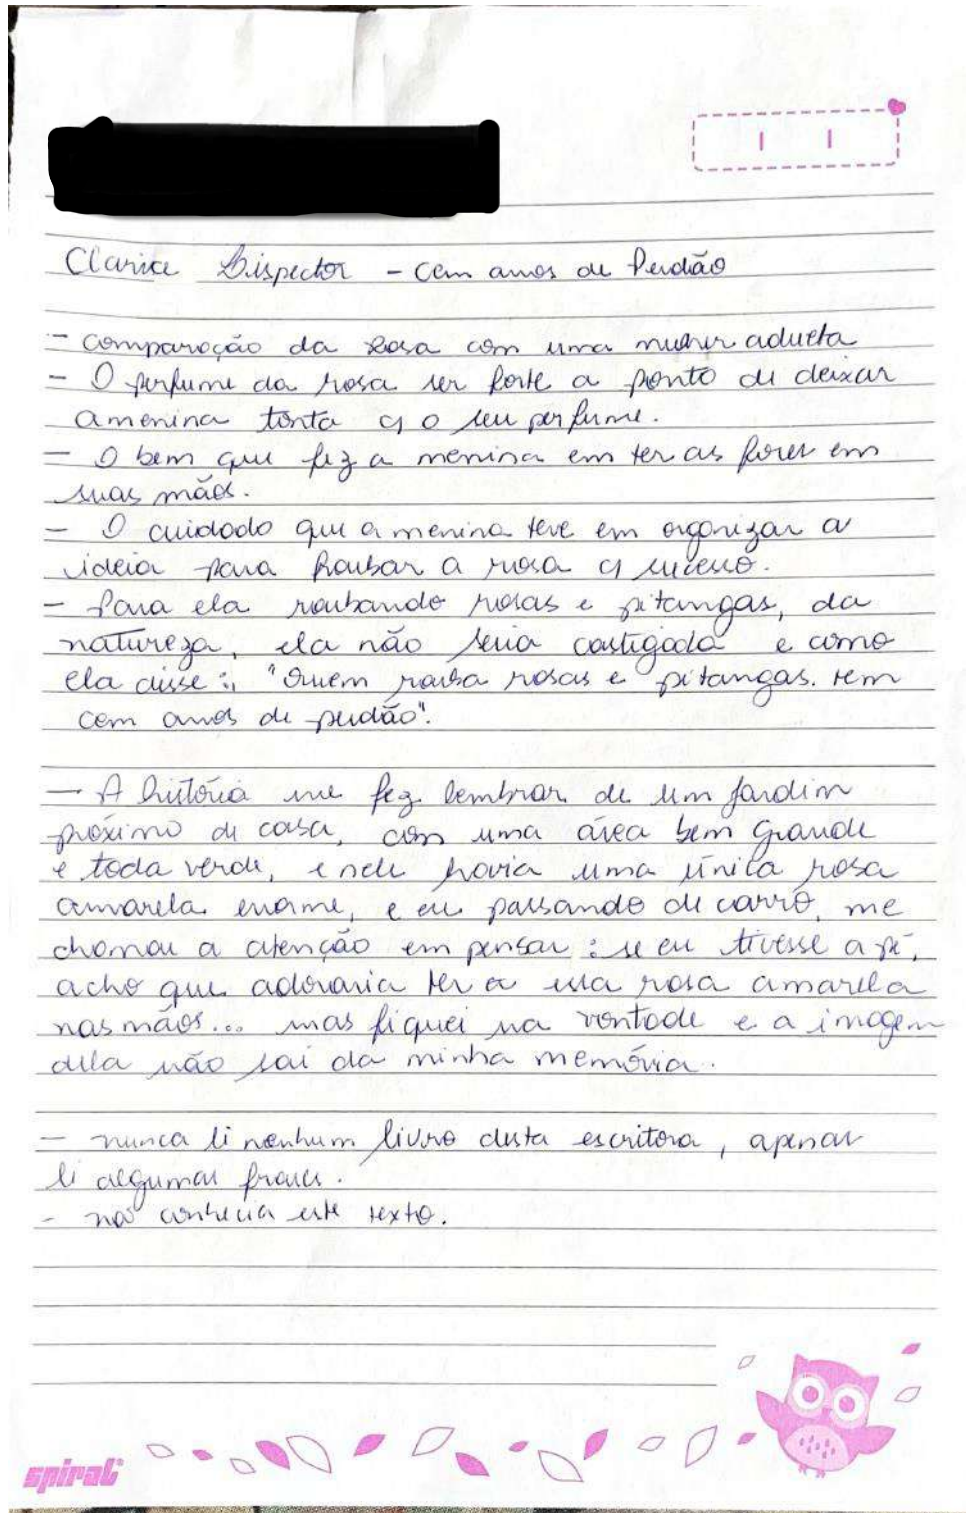 Clarice Lispector - Cem anos de Perdão
- comparação da rosa com uma mulher adulta
- O perfume da rosa ser forte a ponto de deixar
a menina tonta c/ o seu perfume.
- O bem que fez a menina em ter as flores em
suas mãos.
- O cuidado que a menina teve em organizar a
ideia para roubar a rosa c/ sucesso.
- Para ela roubando rosas e pitangas, da
natureza, ela não seria castigada e como
ela disse:, "Quem rouba rosas e pitangas. tem
cem anos de perdão".
- A história me fez lembrar de um jardim
próximo de casa, com uma área bem grande
e toda verde, e nele havia uma única rosa
amarela enorme, e eu passando de carro, me
chamou a atenção em pensar: se eu tivesse a pé,
acho que adoraria ter a essa rosa amarela
nas mãos... mas fiquei na vontade e a imagem
dela não sai da minha memória.
- nunca li nenhum livro desta escritora, apenas
li algumas frases.
- não conhecia este texto.
spiral